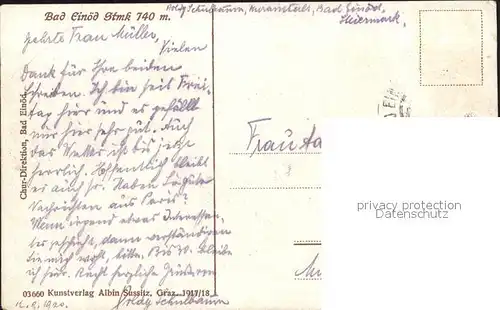 Bad Einöd Stmk 740 m.
Poldy Schulbaum, Kuranstalt, Bad Einöd,
Steiermark,
Geehrte Frau Müller,
Vielen
Dank für Ihre beiden
Schreiben. Ich bin seit Frei-
tag hier und es gefällt
mir hier sehr gut. Auch
das Wetter ist bis jetzt
herrlich. Hoffentlich bleibt
es auch so. Haben Sie gute
Nachrichten aus Paris?
Wenn irgend etwas Interessan-
tes geschieht, dann verständigen
Sie mich wohl, bitte. Bis 30. bleibe
ich hier. Recht herzliche Grüsse von
Poldy Schulbaum
Chur-Direktion, Bad Einöd.
03660 Kunstverlag Albin Sussitz, Graz. 1917/18
Frau
privacy protection